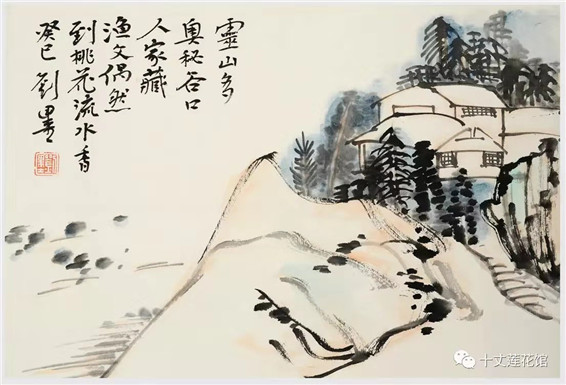 靈山多
奧秘谷口
人家藏
渔父偶然
到桃花流水香
癸巳 劉墨
十丈莲花馆